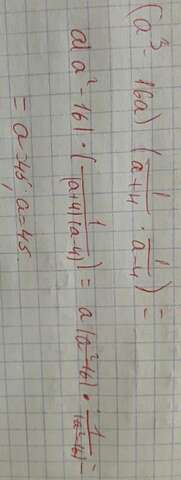 (a³ - 16a) (1/(a+4) · 1/(a-4)) =
a(a² - 16) · (1/((a+4)(a-4))) = a(a²-16) · 1/(a²-16) =
= a